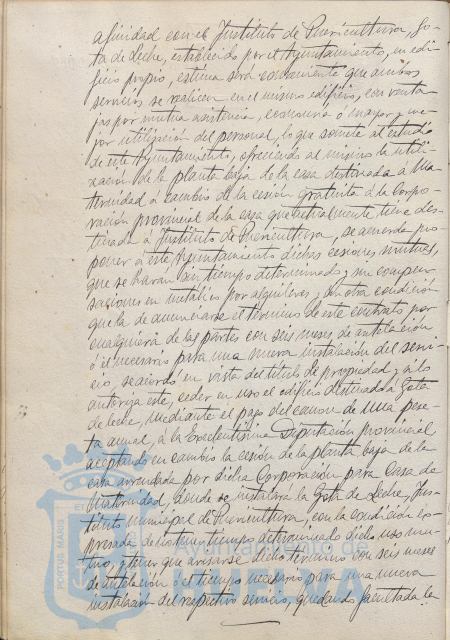 afinidad con el Instituto de Puericultura, Go-
ta de Leche, establecido por el Ayuntamiento, en edi-
ficio propio, estima será conveniente que ambos
servicios se realicen en el mismo edificio, con venta-
jas por mutua asistencia, economía ó mayor y me-
jor utilización del personal, lo que somete al estudio
de este Ayuntamiento, ofreciendo al mismo la utili-
zación de la planta baja de la casa destinada á Ma-
ternidad á cambio de la cesión gratuita á la Corpo-
ración provincial de la casa que actualmente tiene des-
tinada á Instituto de Puericultura, se acuerda pro-
poner á este Ayuntamiento dichas cesiones mutuas,
que se harán sin tiempo determinado y sin compen-
saciones en metálico por alquileres, sin otra condición
que la de anunciarse el término de este contrato por
cualquiera de las partes con seis meses de antelación
ó el necesario para una nueva instalación del servi-
cio, se acordó en vista del título de propiedad y á lo
autoriza este, ceder en uso el edificio destinado á Gota
de leche, mediante el pago del canon de una pese-
ta anual, á la Excelentísima Diputación provincial
aceptando en cambio la cesión de la planta baja de la
casa arrendada por dicha Corporación para Casa de
Maternidad, donde se instalará la Gota de Leche, Ins-
tituto municipal de Puericultura, con la condición ex-
presada de no haber tiempo determinado dicho uso mu-
tuo, y tener que avisarse dicho término con seis meses
de antelación ó el tiempo necesario para una nueva
instalación del respectivo servicio, quedando facultada la
Ayuntamiento de
PORTUS MAGNUS